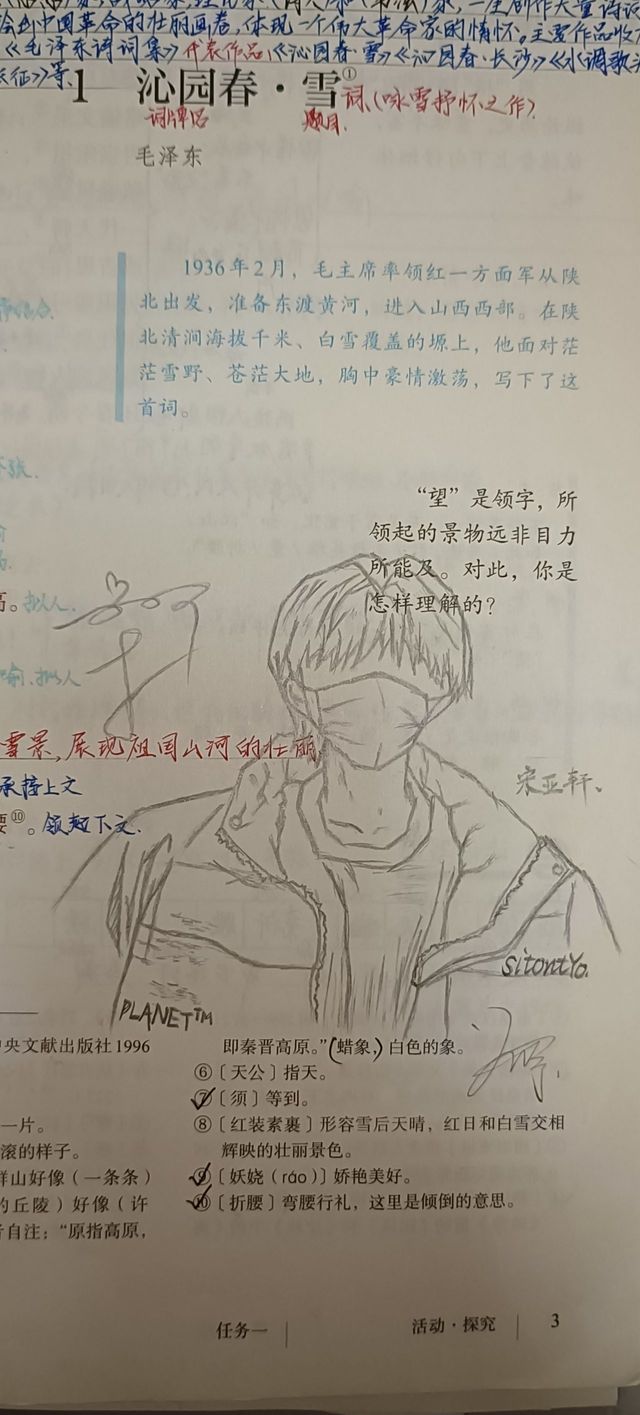 会出中国革命的壮丽画卷,体现一个伟大革命家的情怀。主要作品收
《毛泽东诗词集》代表作品,《沁园春·雪》《沁园春·长沙》《水调歌
长征》等
1 沁园春·雪① 词,(咏雪抒怀之作)
词牌名 题目.
毛泽东
1936年2月,毛主席率领红一方面军从陕
北出发,准备东渡黄河,进入山西西部。在陕
北清涧海拔千米、白雪覆盖的塬上,他面对茫
茫雪野、苍茫大地,胸中豪情激荡,写下了这
首词。
“望”是领字,所
领起的景物远非目力
所能及。对此,你是
怎样理解的?
高。拟人.
喻.拟人
雪景,展现祖国山河的壮丽
承接上文
要⑩。领起下文.
宋亚轩、
PLANET™
sitontYo.
中央文献出版社1996
一片。
滚的样子。
群山好像(一条条)
的丘陵)好像(许
者自注:“原指高原,
即秦晋高原。”(蜡象,)白色的象。
⑥〔天公〕指天。
⑦〔须〕等到。
⑧〔红装素裹〕形容雪后天晴,红日和白雪交相
辉映的壮丽景色。
⑨〔妖娆(ráo)〕娇艳美好。
⑩〔折腰〕弯腰行礼,这里是倾倒的意思。
任务一 活动·探究 3